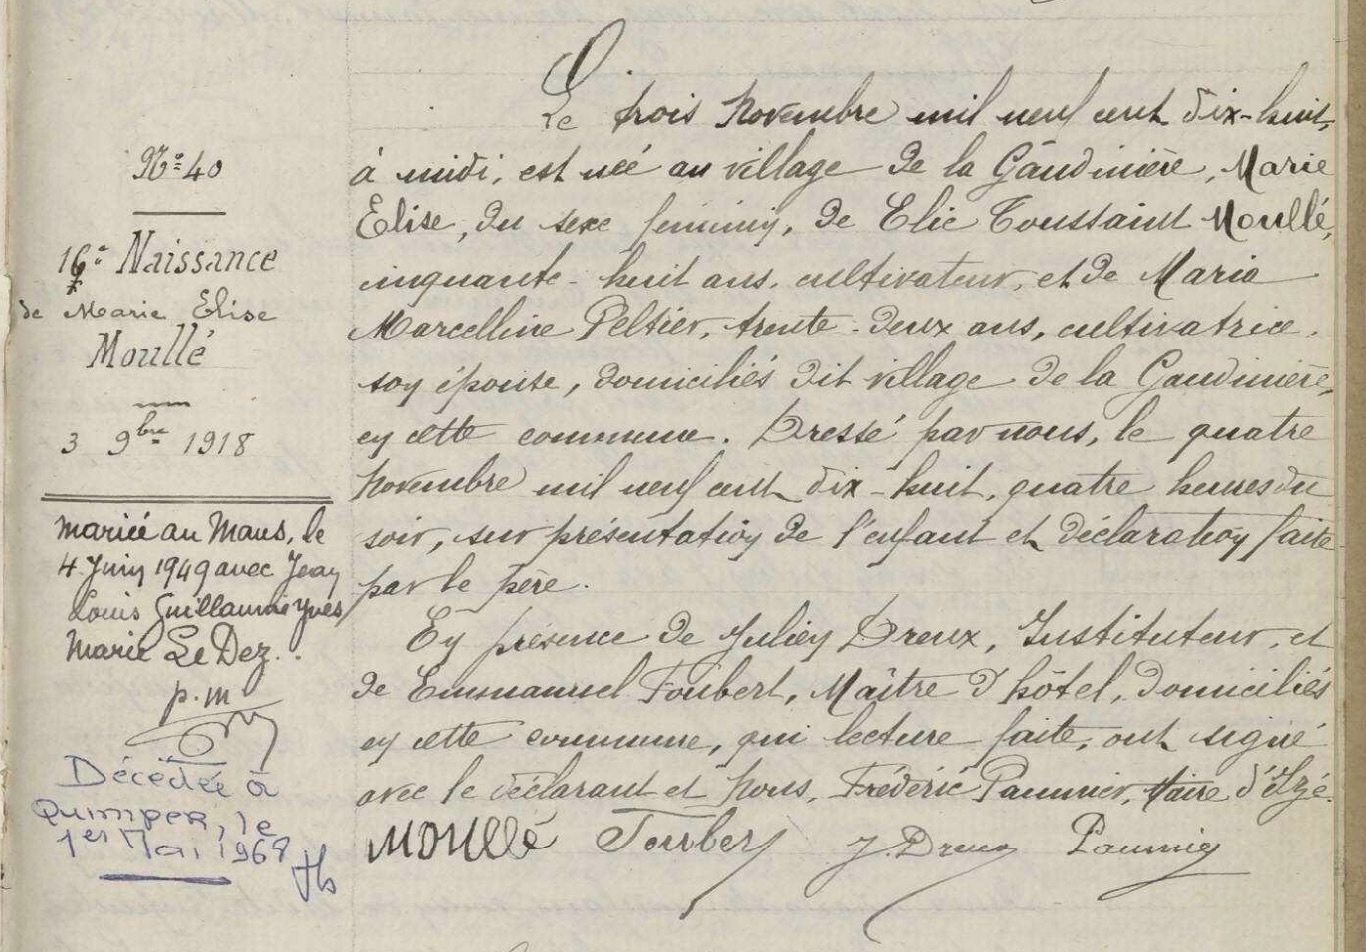 N° 40
16e Naissance
de Marie Elise
Moullé
3 9bre 1918
mariée au Mans, le
4 Juin 1949 avec Jean
Louis Guillaume Yves
Marie Le Dez.
p. m
Décédée à
Quimper, le
1er Mai 1968
Le trois Novembre mil neuf cent dix-huit,
à midi, est née au village de la Gaudinière, Marie
Elise, du sexe féminin, de Elie Toussaint Moullé,
cinquante-huit ans, cultivateur, et de Maria
Marcelline Peltier, trente-deux ans, cultivatrice,
son épouse, domiciliés dit village de la Gaudinière,
en cette commune. Dressé par nous, le quatre
Novembre mil neuf cent dix-huit, quatre heures du
soir, sur présentation de l'enfant et déclaration faite
par le père.
En présence de Julien Dreux, Instituteur, et
de Emmanuel Foubert, Maître d'hôtel, domiciliés
en cette commune, qui lecture faite, ont signé
avec le déclarant et Nous, Frédéric Paumier, Maire d'Izé.
Moullé Foubert J. Dreux Paumier